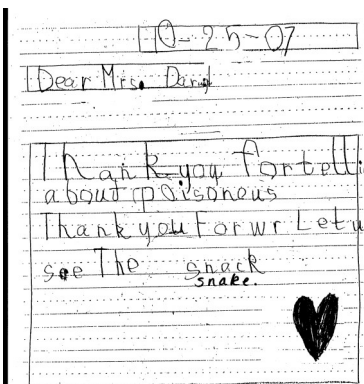 10-25-07
Dear Mrs.
Thank you for telli
about poisoneus
Thank you For wr Let u
see The snack
snake.